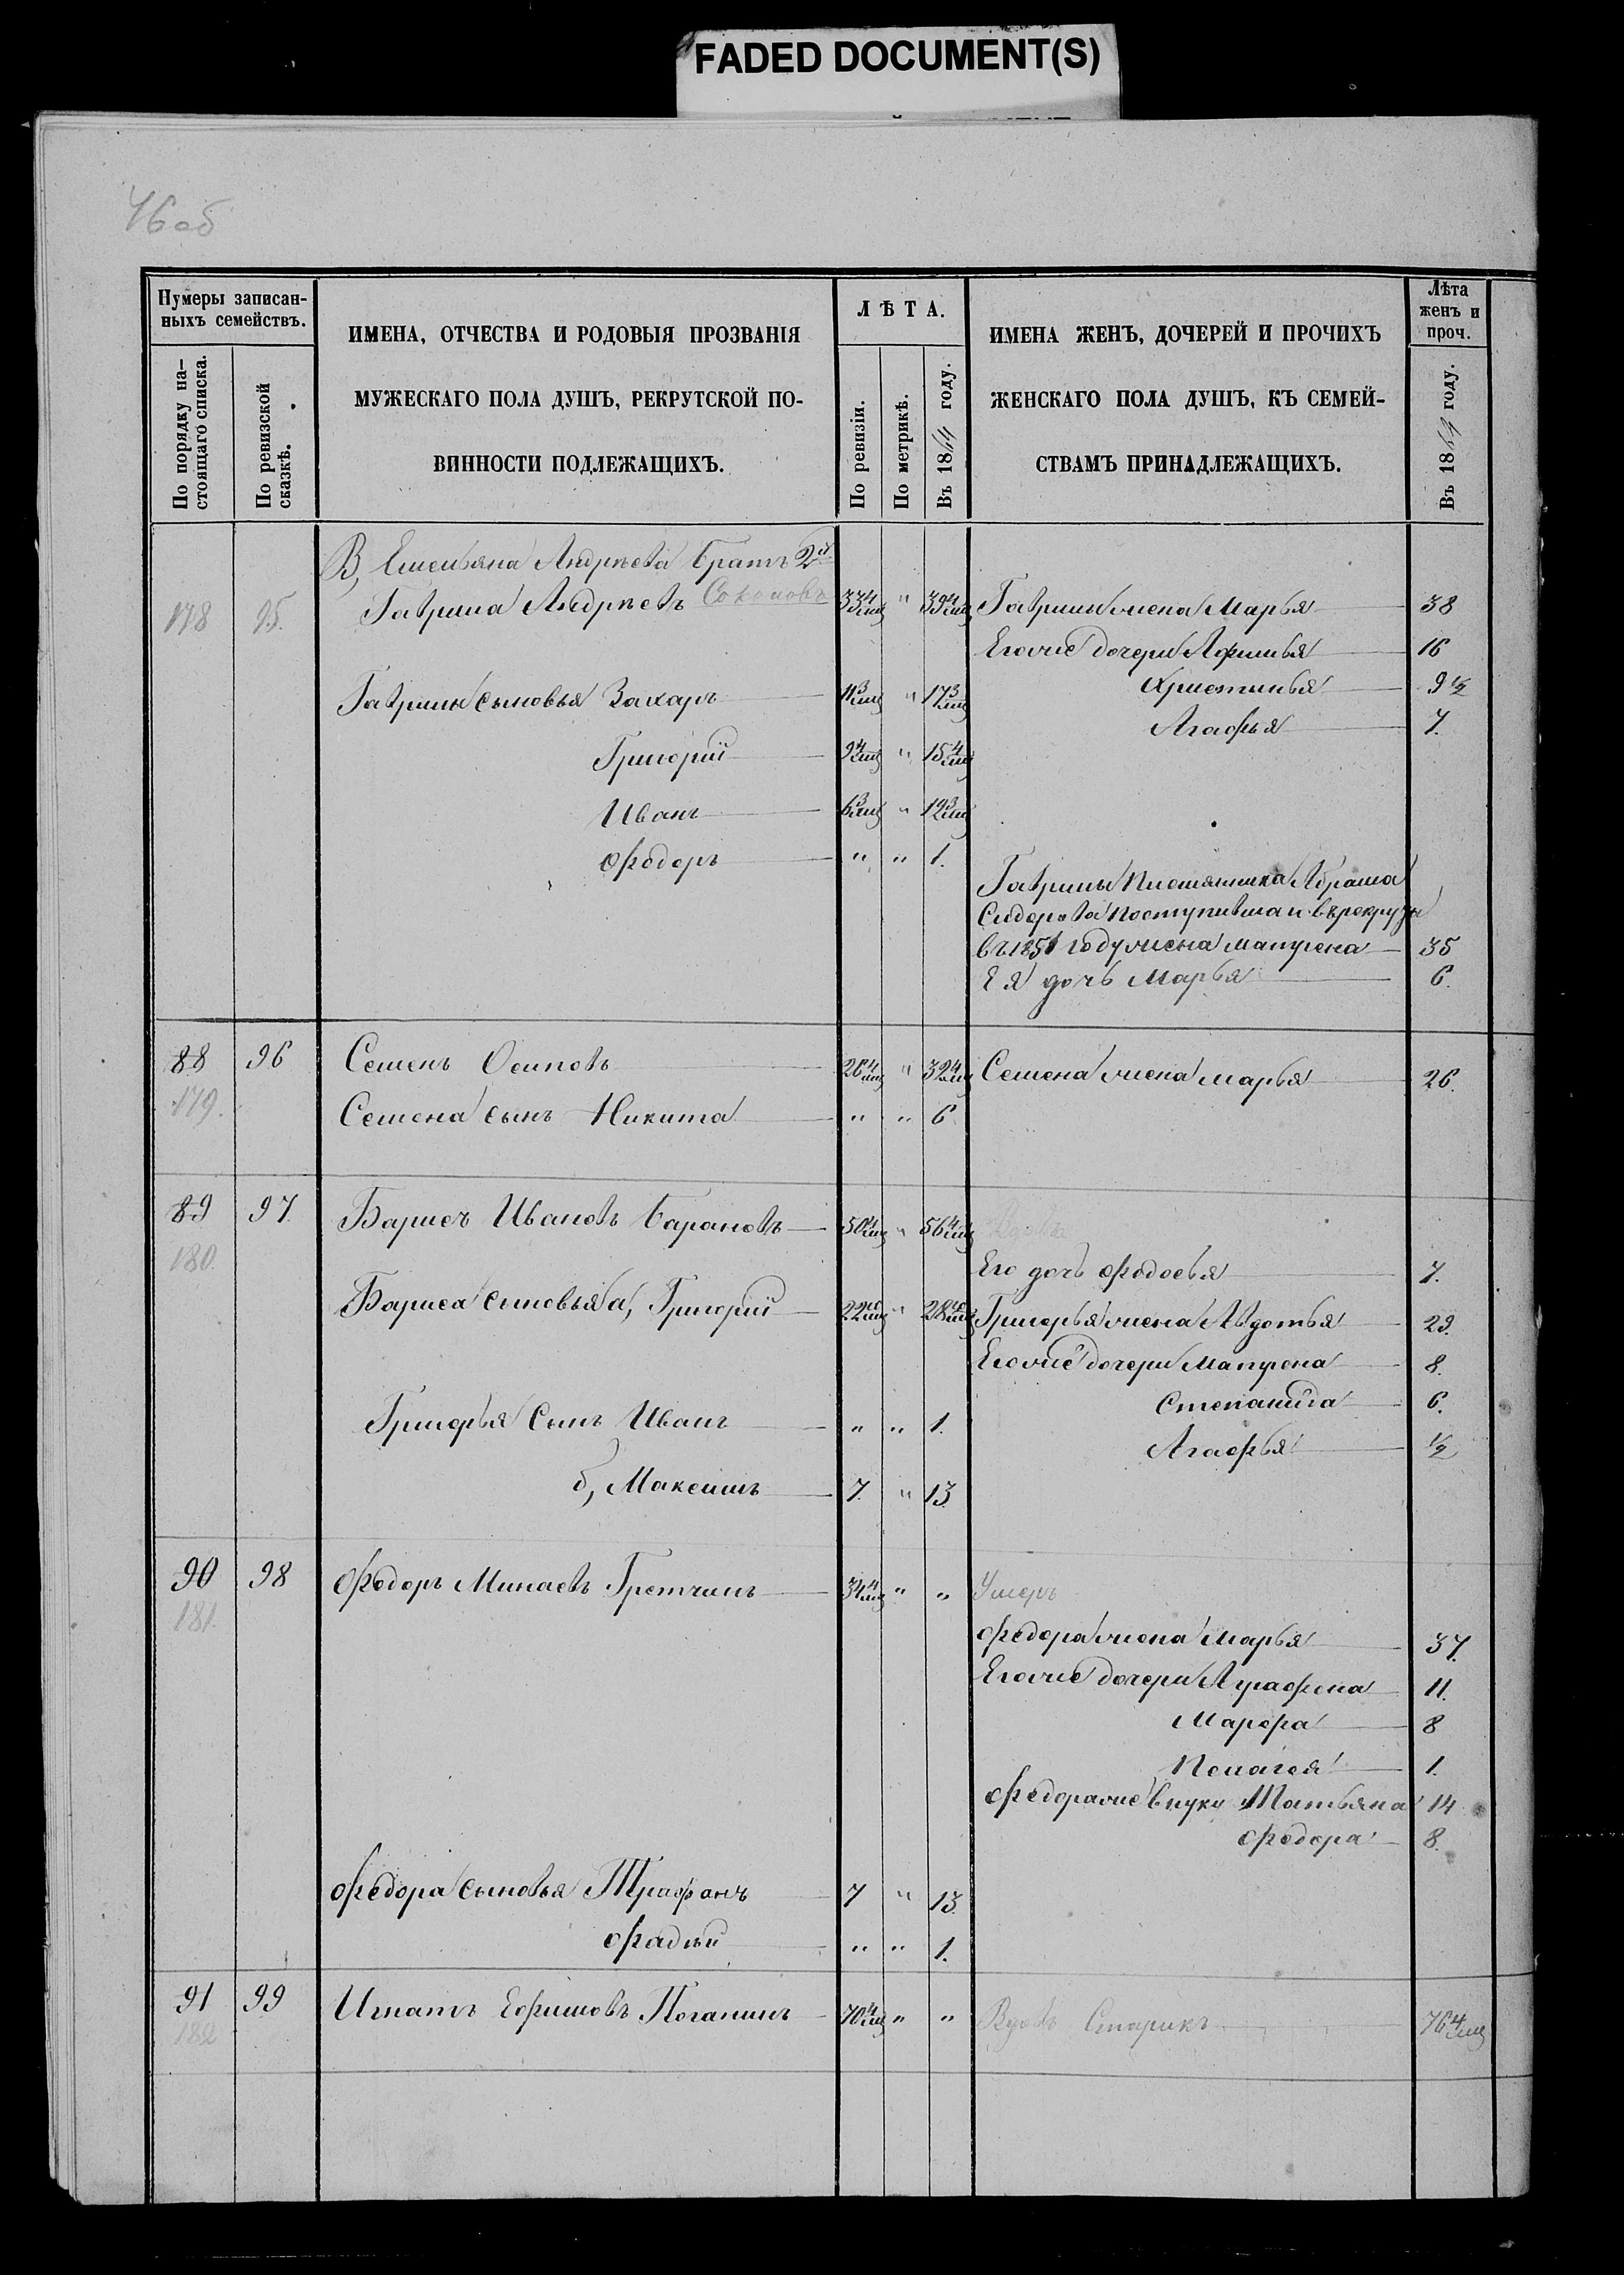 FADED DOCUMENT(S)
46 об
Нумеры записан-
ныхъ семействъ.
По порядку на-
стоящаго списка.
По ревизской
сказкѣ.
ИМЕНА, ОТЧЕСТВА И РОДОВЫЯ ПРОЗВАНІЯ
МУЖЕСКАГО ПОЛА ДУШЪ, РЕКРУТСКОЙ ПО-
ВИННОСТИ ПОДЛЕЖАЩИХЪ.
ЛѢТА.
По ревизіи.
По метрикѣ.
Въ 1864 году.
ИМЕНА ЖЕНЪ, ДОЧЕРЕЙ И ПРОЧИХЪ
ЖЕНСКАГО ПОЛА ДУШЪ, КЪ СЕМЕЙ-
СТВАМЪ ПРИНАДЛЕЖАЩИХЪ.
Лѣта
женъ и
проч.
Въ 1864 году.
В, Емельяна Андрѣева братъ 2й
178 95. Гаврила Андрѣевъ Соколовъ 33 4/мц " 39 4/мц Гаврилы жена Марья 38
Его же дочери Афимья 16
Гаврилы сыновья Захаръ 11 3/мц " 17 3/мц Христинья 9 1/2
Агафья 7.
Григорій 9 4/мц " 15 4/мц
Иванъ 6 3/мц " 12 3/мц
Ѳедоръ " " 1.
Гаврилы племянника Абрама
Сидорова поступившаго в рекруты
въ 1851 году жена Матрена 35
Ея дочь Марья 6.
88 96 Семенъ Осиповъ 26 4/мц " 32 4/мц Семена жена Марья 26.
179. Семена сынъ Никита " " 6
89 97. Борисъ Ивановъ Барановъ 50 4/мц " 56 4/мц
180. Его дочь Федосья 7.
Бориса сыновья а, Григорій 22 10/мц " 28 10/мц Григорья жена Авдотья 29.
Его же дочери Матрена 8.
Степанида 6.
Григорья сынъ Иванъ " " 1.
Агафья 1/2
б, Максимъ 7. " 13.
90 98 Федоръ Минаевъ Гретчинъ 34 4/мц " " Умеръ
181. Федора жена Марья 37.
Его же дочери Аграфена 11.
Марфа 8
Пелагея 1.
Федора же внуки Татьяна 14
Федора 8.
Федора сыновья Трафанъ 7 " 13.
Фадѣй " " 1.
91 99 Игнатъ Ефимовъ Поганинъ 70 4/мц " " Вдовъ Старикъ 76 4/мц
182